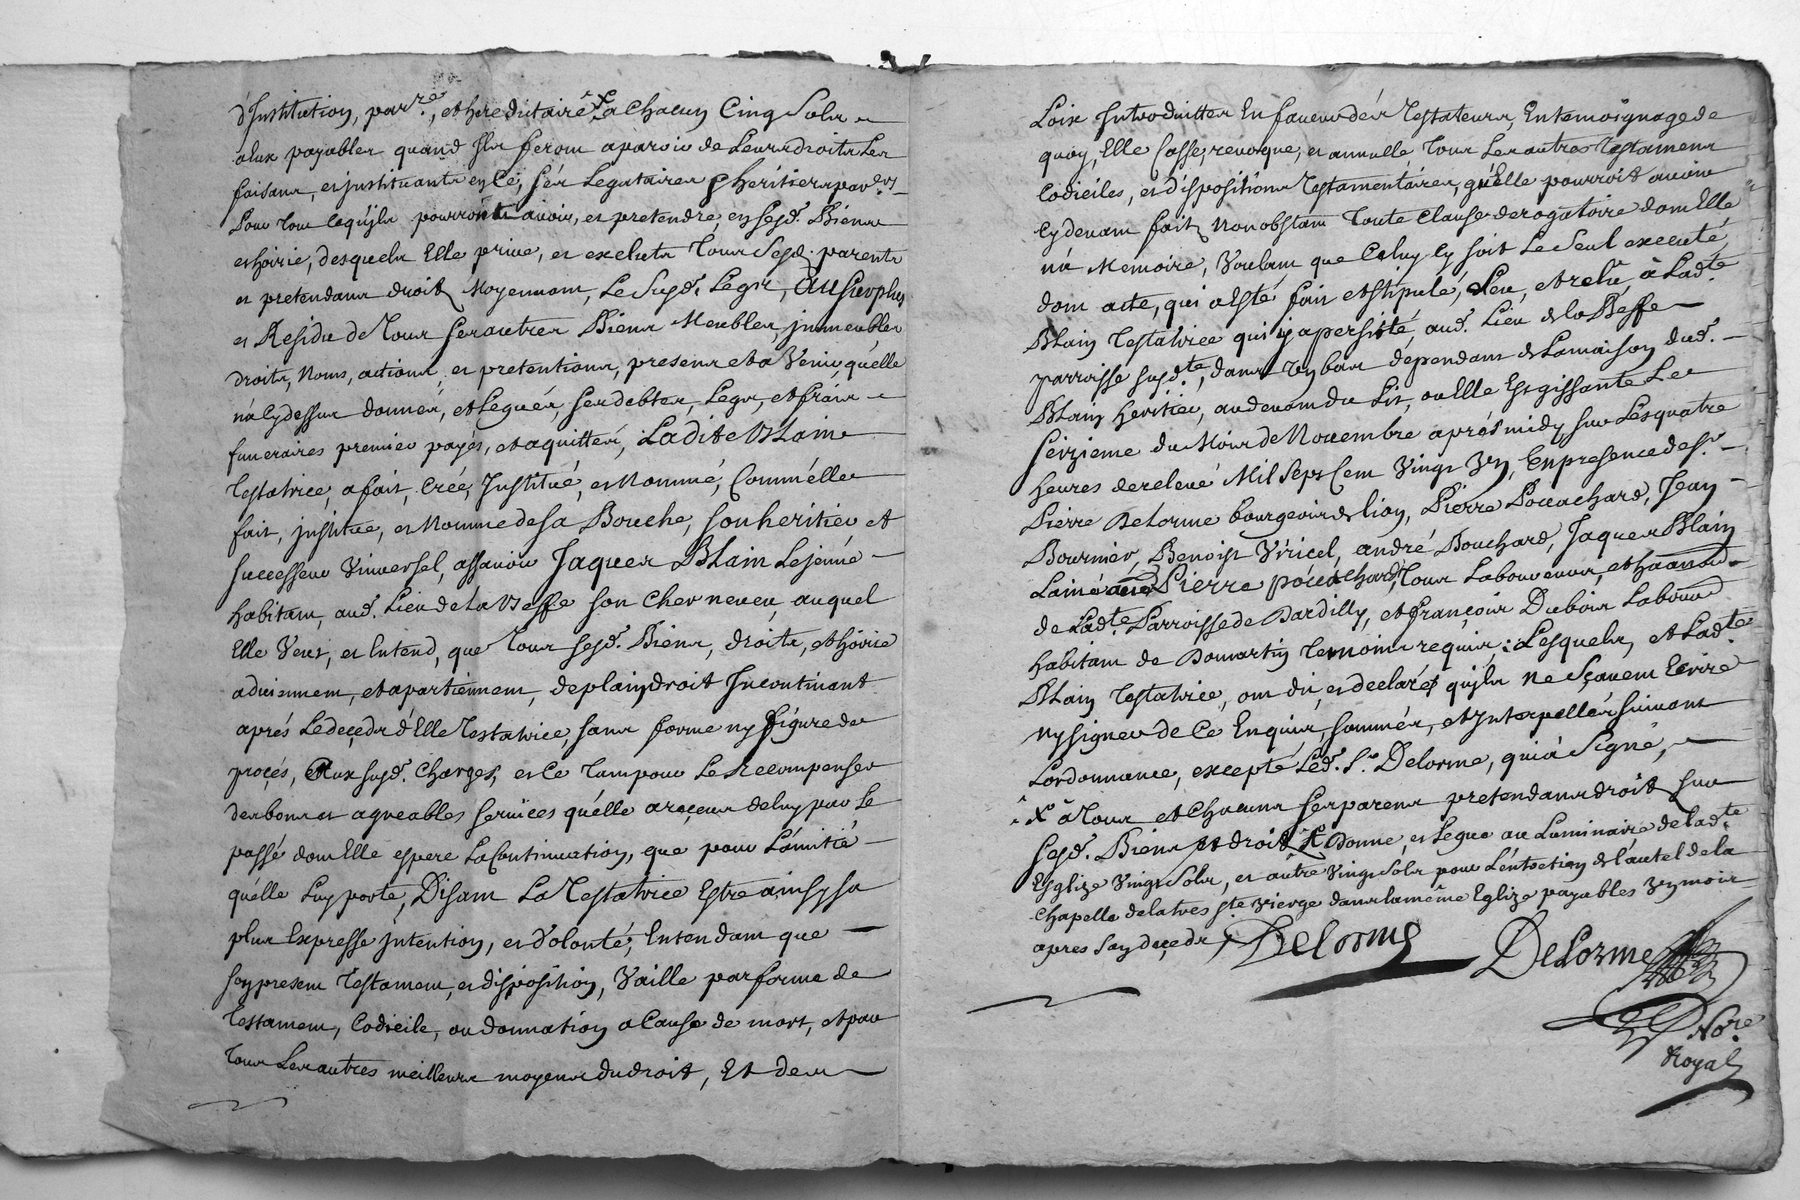 d'Institution, par.re, et hereditaire, X a Chacun Cinq Sols
a Eux payables quand Ils feront aparoir de Leurs droits Les
faisant, et justituants en Ce, ses Legataires & heritiers par.ers
Pour Tout Cequ'jls pourroient avoir, et pretendre, en sesd. Biens
et hoirie, desquels Elle prive, et exclutz Tous Sesd. parents
et pretendans droit, Moyennant, Le Susd. Legs, Au Surplus
et Residu de Tous ses autres Biens Meubles, jmmeubles
droits, Noms, actions, et pretentions, presens et a Venir, qu'elle
n'a Cy dessus donnés, et Legués, ses debtes, Legs, et frais
funeraires premier payés, et aquittés, Ladite Blain
Testatrice, a fait, Créé, Jnstitué, et Nommé, Comm'elle
fait, jnstitue, et Nomme de sa Bouche, son heritier et
Successeur Vniversel, assavoir Jaques Blain Lejeune
habitant, aud. Lieu de La Beffe son Cher neveu, auquel
Elle Veut, et Entend, que Tous sesd. Biens, droits, et hoirie
adviennent, et apartiennent, de plain droit Incontinant
aprés Le decedz d'Elle Testatrice, sans forme ny figure de
procés, Aux susd. Charges, et Ce Tant pour Le Recompenser
des bons et agreables services qu'elle a receus de luy par Le
passé dont Elle espere La Continuation, que pour L'amitié
quelle Luy porte, Disant La Testatrice Estre ainsy sa
plus Expresse Jntention, et Volonté, Entendant que
son present Testament, et disposition, Vaille par forme de
Testament, Codicile, ou donnation a Cause de mort, et par
Tous Les autres meilleurs moyens du droit, Et des
Loix Introduittes En faveur des Testateurs, En temoignage de
quoy, Elle Casse, revoque, et annulle Tous Les autres Testamens
Codiciles, et dispositions Testamentaires, qu'Elle pourroit avoir
Cy devant faitz Nonobstant Toute Clause derogatoire dont Elle
n'a Memoire, Voulant que Celuy Cy soit Le Seul executé,
dont acte, qui a Esté fait et stipulé, Leu, et relû, à Lad.te
Blain Testatrice qui y a persisté aud. Lieu de la Beffe
parroisse susd.te, dans Vn bas dépendant de La maison dud.
Blain heritier, au devant du Lit, ou Elle Est gissante Le
seizieme du Mois de Novembre aprés midy, sur Les quatre
heures de relevé Mil Sept Cent Vingt Vn, En presence de s.r
Pierre Delorme bourgeois de lion, Pierre Pouachard, Jean
Bournier, Benoist Viricel, andré Bouchard, Jaques Blain
Lainé Pierre pouachard, Tous Laboureurs, et habitans
de Lad.te Parroisse de Dardilly, et François Dubois Laboureur
habitant de Domartin Temoins requis; Lesquels, et Lad.te
Blain Testatrice, ont dit, et declaré, qu'jls ne Sçavent Ecrire
ny signer de Ce Enquis, sommés, et Interpellés suivant
Lordonnance, excepté Led. S.r Delorme, qui à Signé,
X à Tous et Chacuns ses parens pretendans droit sur
sesd. Biens et droit X Donne, et Legue au Luminaire de lad.te
Esglize Vingt Sols, et autre Vingt Sols pour L'entretien de l'autel de la
Chapelle de la tres S.te Vierge dans la même Eglize payables Vn mois
apres Son decedz, Delorme Delorme
No.re
Royal